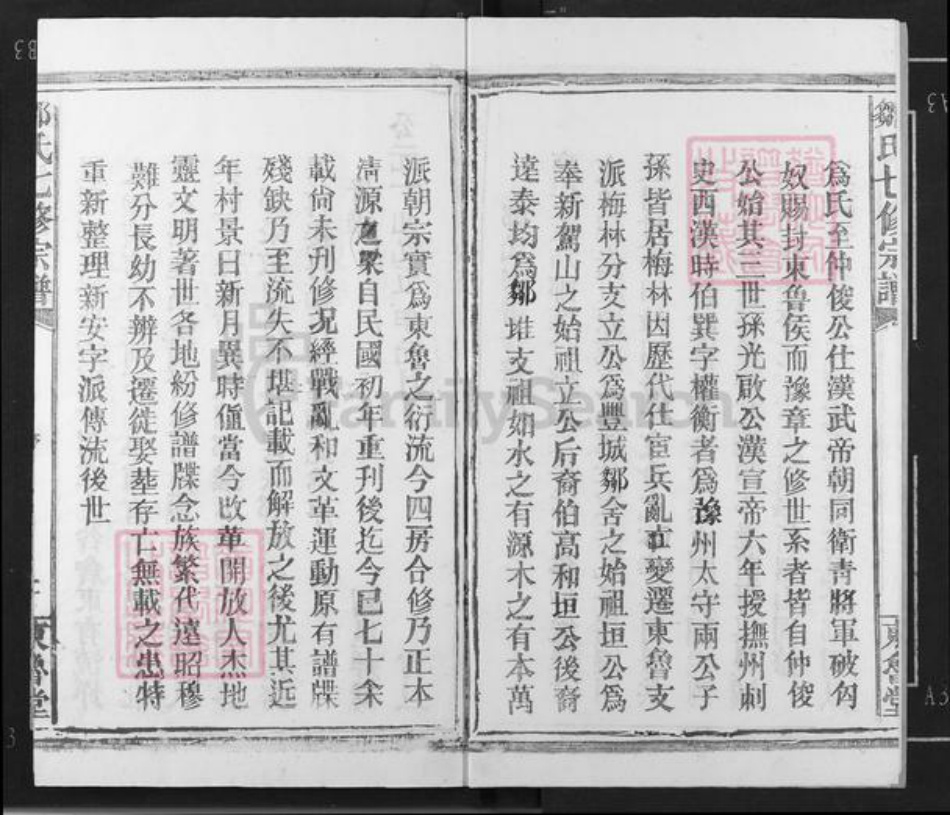 鄒氏七修宗譜
東魯堂
爲氏至仲俊公仕漢武帝朝同衛靑將軍破匈
奴賜封東魯侯而豫章之修世系者皆自仲俊
公始其三世孫光啟公漢宣帝六年授撫州刺
史西漢時伯巽字權衡者爲豫州太守兩公子
孫皆居梅林因歷代仕宦兵亂市變遷東魯支
派梅林分支立公爲豐城鄒舍之始祖垣公爲
奉新駕山之始祖立公后裔伯高和垣公後裔
達泰均爲鄒堆支祖如水之有源木之有本萬
派朝宗實爲東魯之衍流今四房合修乃正本
清源之擧自民國初年重刊後迄今已七十余
載尙未刊修況經戰亂和文革運動原有譜牒
殘缺乃至流失不堪記載而解放之後尤其近
年村景日新月異時值當今改革開放人杰地
靈文明著世各地紛修譜牒念族繁代遠昭穆
難分長幼不辨及遷徙娶塟存亡無載之患特
重新整理新安字派傳流後世
鄒氏七修宗譜
東魯堂
FamilySearch
A3
A3